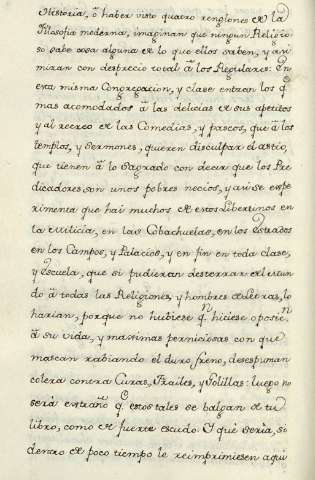 Historia, ô haber visto quatro renglones de la
Filosofia moderna, imaginan que ningun Religio-
so sabe cosa alguna de lo que ellos saben, y asi
miran con desprecio total â los Regulares. En
esta misma Congregacion, y clase entran los q.
mas acomodados â las delicias de sus apetitos
y al recreo de las Comedias, y paseos, que â los
templos, y Sermones, quieren disculpar el astio,
que tienen â lo Sagrado con decir que los Pre-
dicadores son unos pobres necios, y asi se expe-
rimenta que hai muchos de estos Libertinos en
la Milicia, en las Cobachuelas, en los Estrados
en los Campos, y Palacios, y en fin en toda clase,
y Escuela, que si pudieran desterrar del Mun-
do â todas las Religiones, y hombres de Letras, lo
harian, porque no hubiese q.n hiciese oposic.n
â su vida, y maximas perniciosas con que
mascan rabiando el duro freno, desespuman
colera contra Curas, Frailes, y Golillas: luego no
será extraño q. estos tales se balgan de tu
libro, como de fuerte escudo. Y què sería, si
dentro de poco tiempo le reimprimiesen aqui